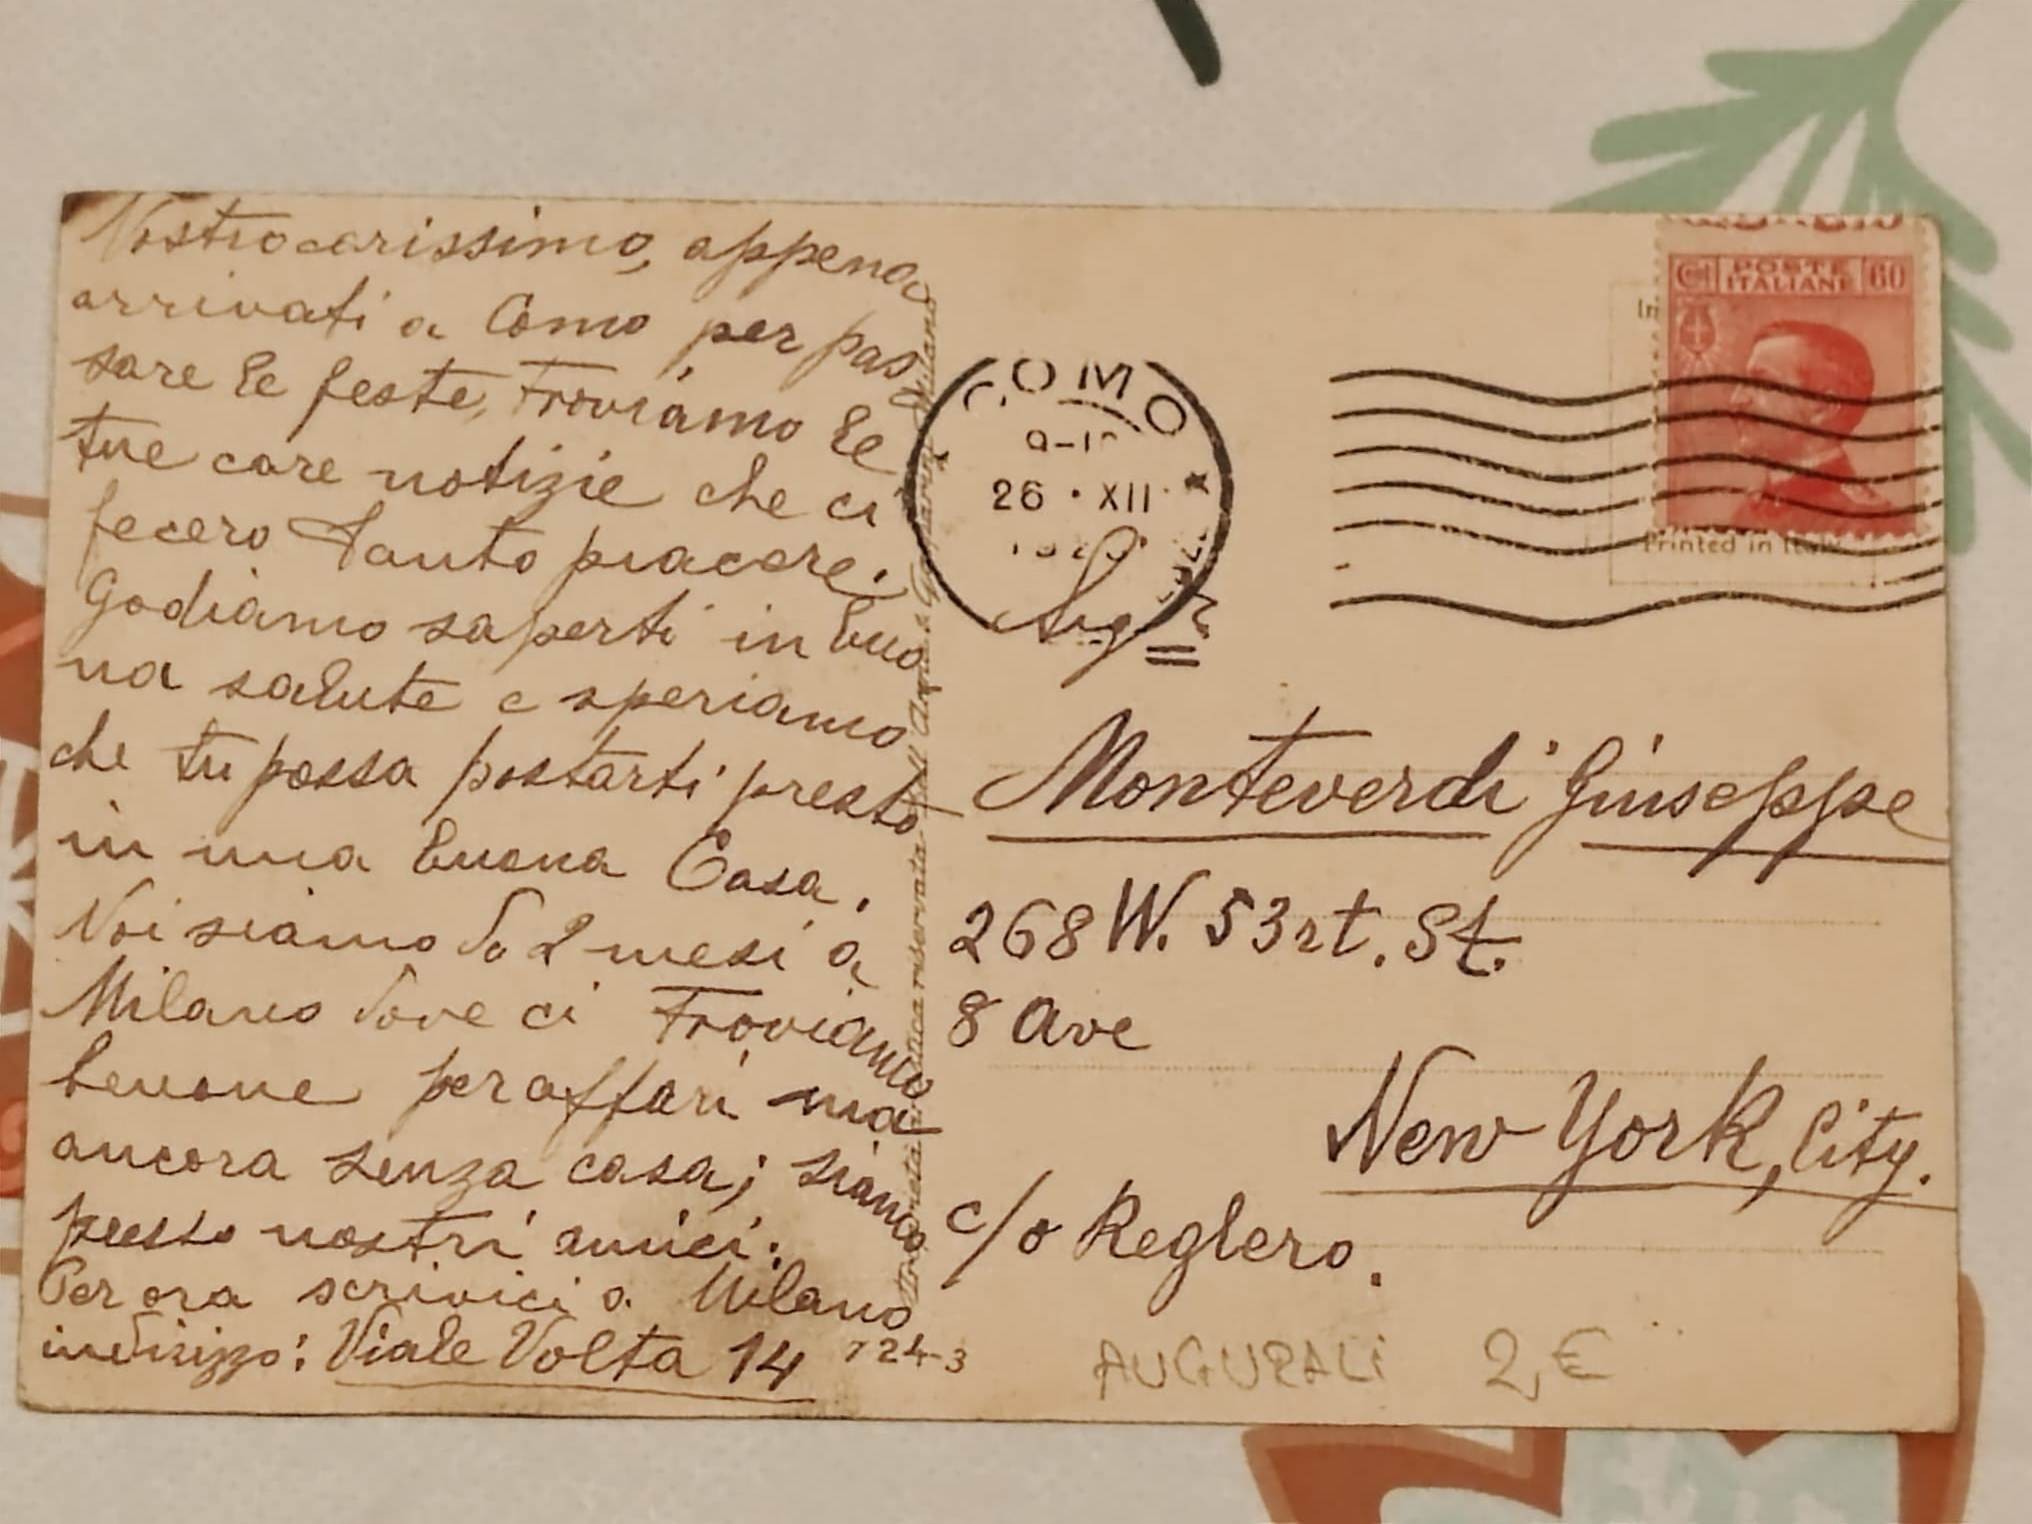 Nostro carissimo, appena
arrivati a Como per pas
sare le feste, Troviamo le
tue care notizie che ci
fecero Tanto piacere.
Godiamo saperti in buo
na salute e speriamo
che tu possa postarti presto
in una buona Casa.
Noi siamo da 2 mesi a
Milano dove ci Troviamo
benone per affari ma
ancora senza casa; siamo
presso nostri amici.
Per ora scrivici a Milano
indirizzo: Viale Volta 14
724-3
riservata
Milano
COMO
26 · XII
CI POSTE ITALIANE 60
Printed in Italy
Sig.r
Monteverdi Giuseppe
268 W. 53rt. St.
8 Ave
New York, City.
c/o Reglero.
AUGURALI 2,€